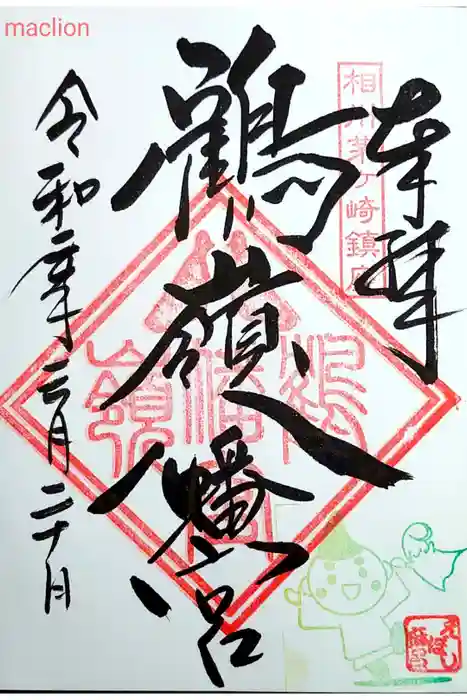 maclion
奉拝
相州茅ヶ崎鎮座
鶴嶺八幡宮
鶴嶺八幡宮
令和二年三月二十日
えぼし
麻呂